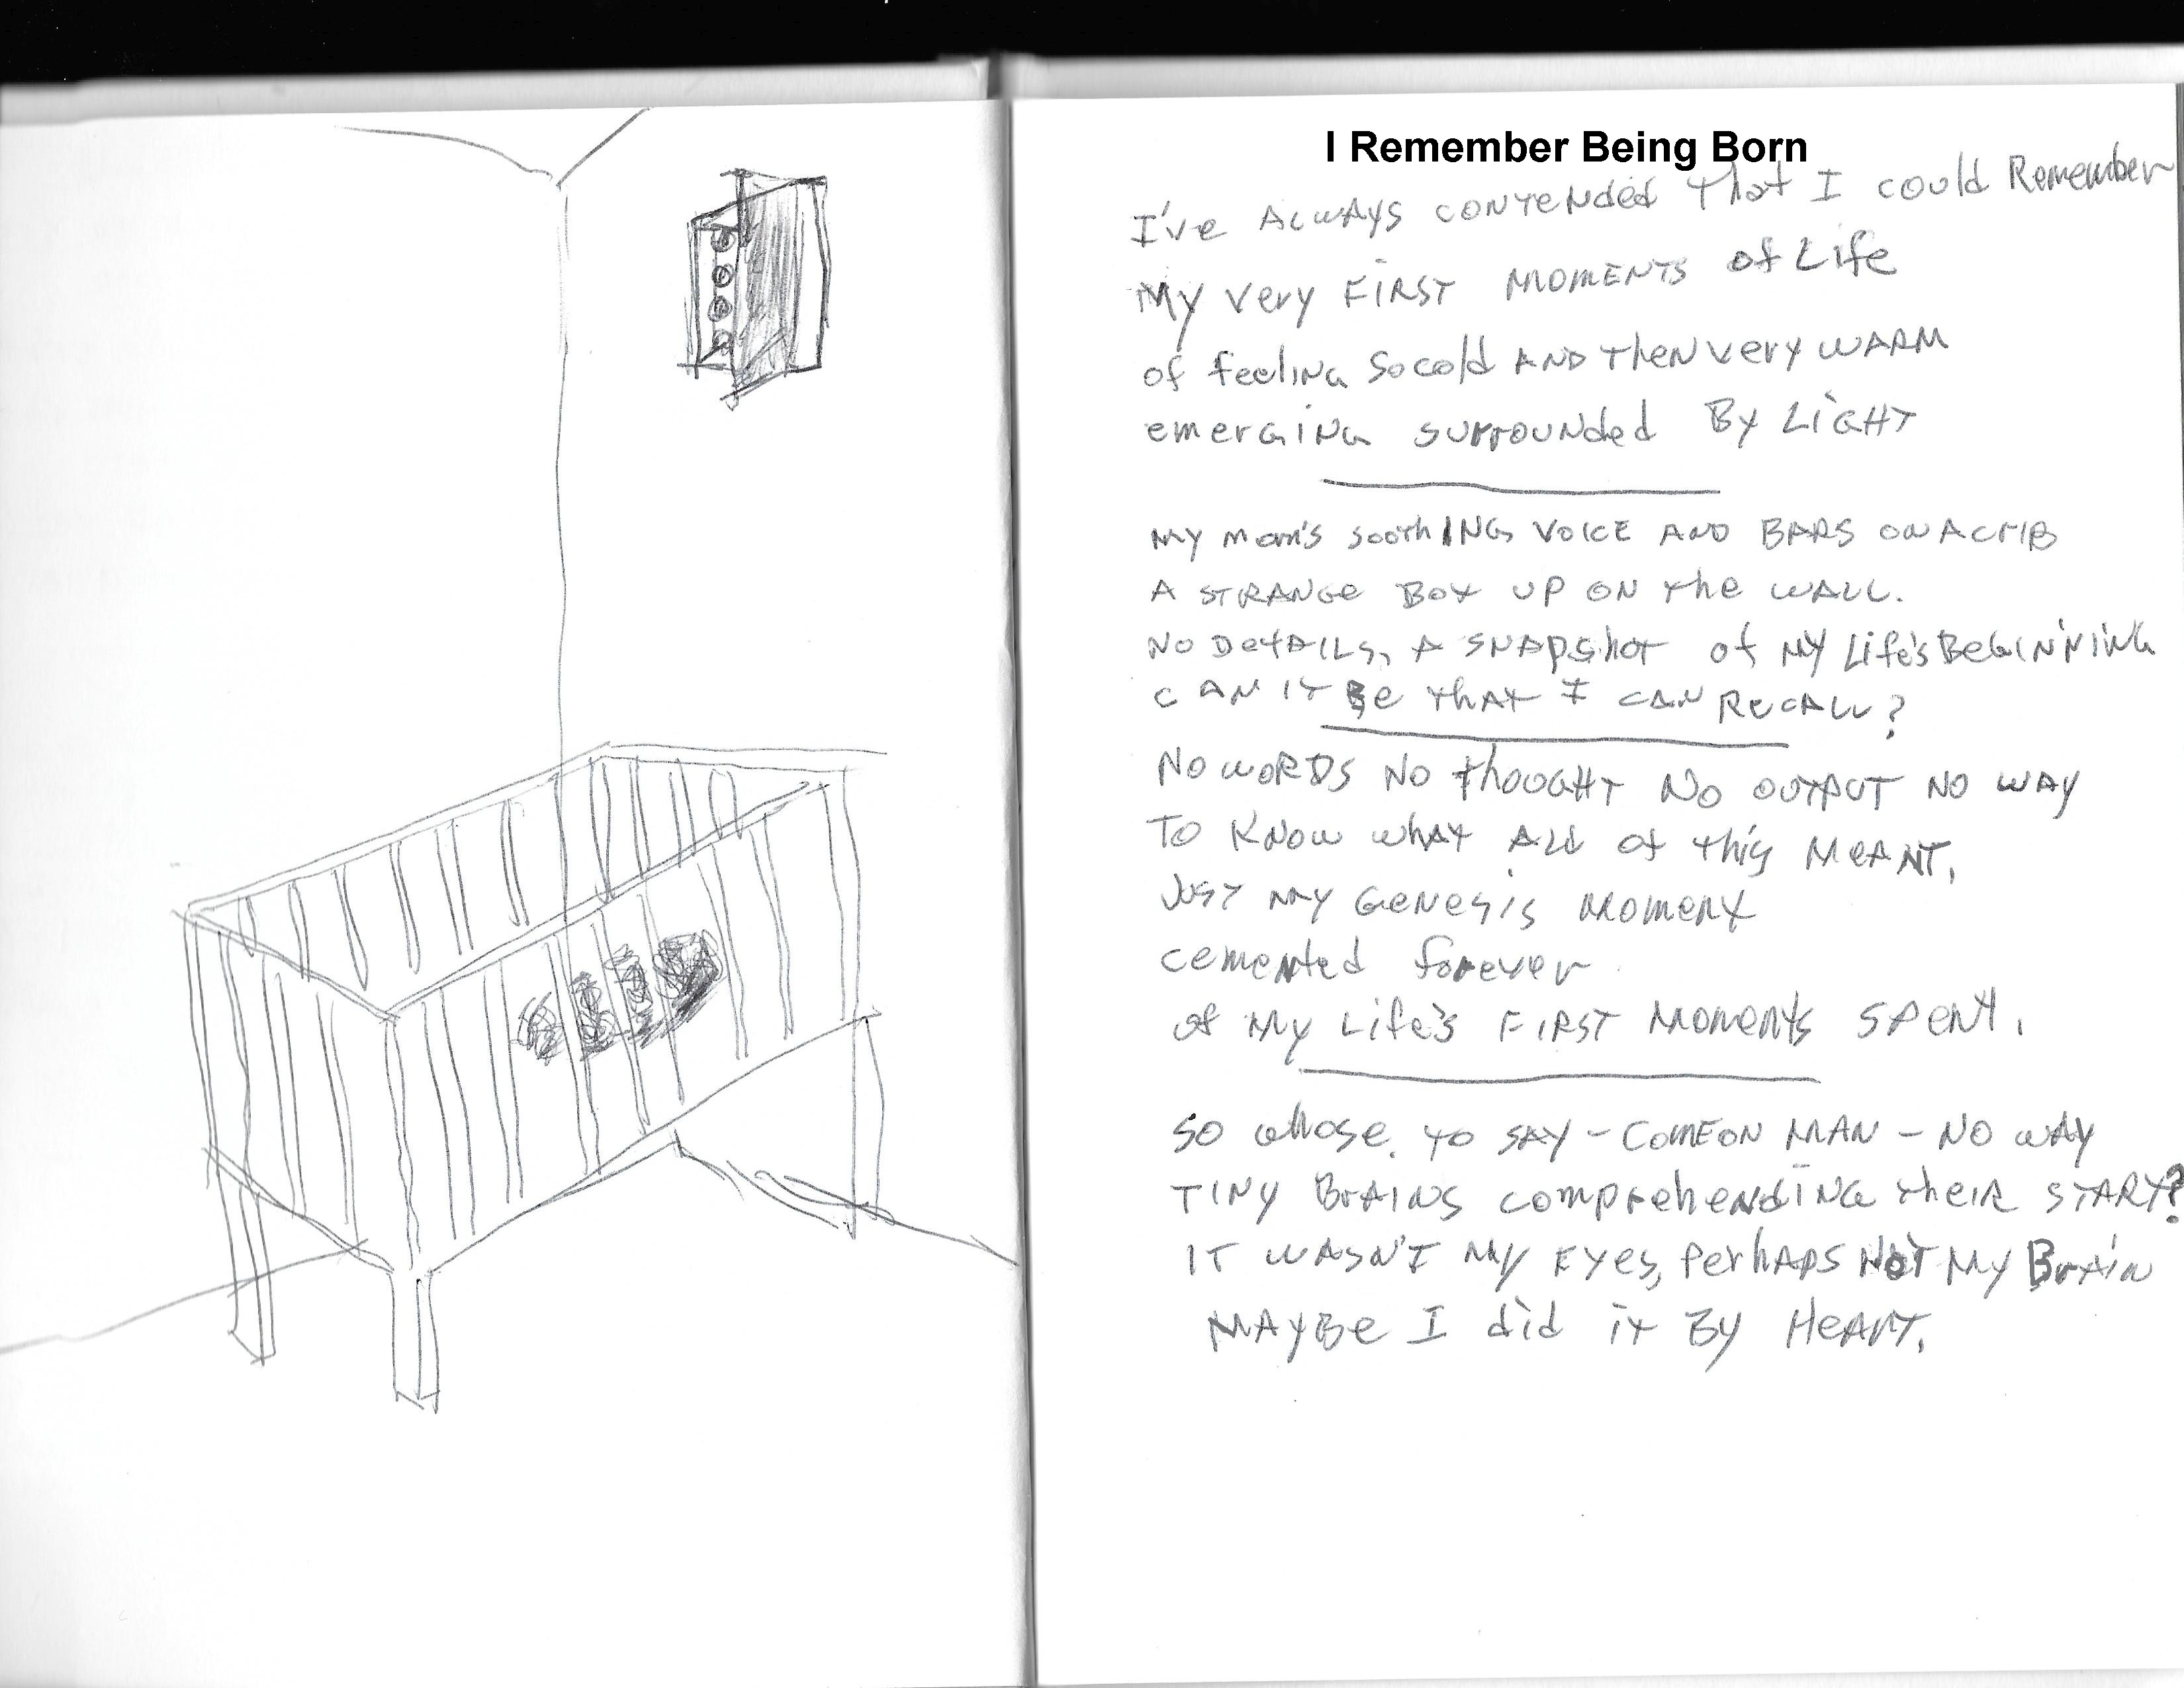 I Remember Being Born
I've Always contended that I could Remember
My very FIRST MOMENTS of Life
of feeling So cold AND Then very WARM
emerging surrounded By LiGHT
My mom's soothING VOICE AND BARS ON A crIB
A STRANGE BOX UP ON the WALL.
NO DetAILS, A SNApshot of MY Life's BeGINNING
CAN IT Be that I CAN RECALL?
NO WORDS NO thOUGHT NO OUTPUT NO WAY
TO KNOW whAT All of this MEANT.
JUST my GENesis MOMENt
cemented forever
of My Life's FIRST MOMENts SPENt.
SO whose to SAY - COMEON MAN - NO WAY
TINY BrAINS comprehendiNG their START?
IT WASN'T MY EYES, PerhAPS NOT MY BrAiN
MAYBE I did it By HeART.